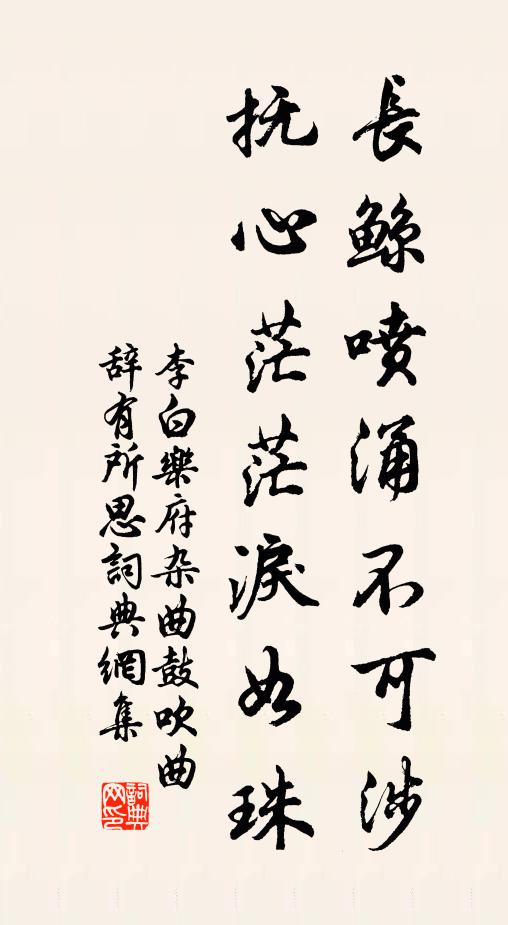 長鲸噴涌不可涉
抚心茫茫淚如珠
李白樂府杂曲鼓吹曲
辞有所思詞典網集
詞典
网印